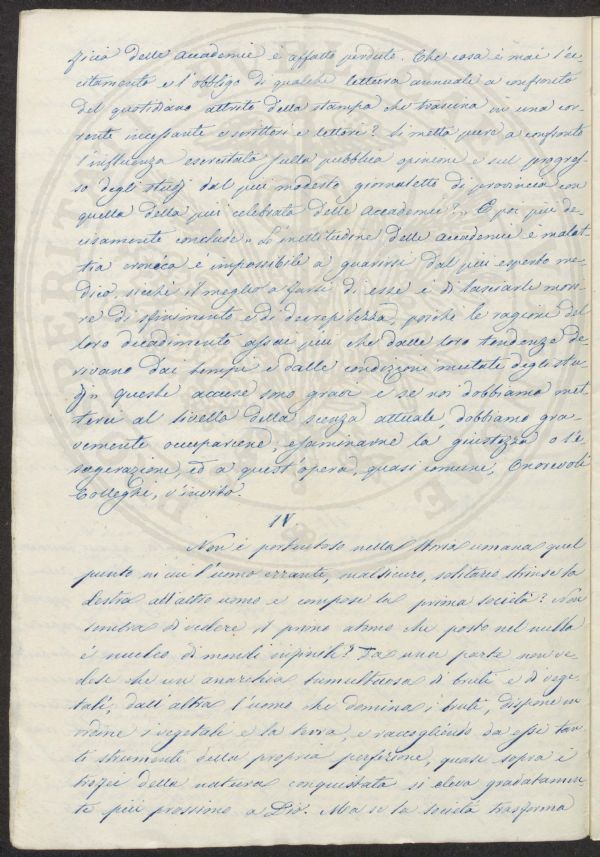 ficio delle Accademie è affatto perduto. Che cosa è mai l'ec-
citamento e l'obbligo di qualche lettura annuale a confronto
del quotidiano attrito della stampa che trascina in una cor-
rente incessante scrittori e lettori? Si metta pure a confronto
l'influenza esercitata sulla pubblica opinione e sul progres-
so degli studj dal più modesto giornaletto di provincia con
quella della più celebrata delle Accademie?" E poi più de-
cisamente conclude "L'inettitudine delle Accademie è malat-
tia cronica è impossibile a guarirsi dal più esperto me-
dico, sicchè il meglio a farsi di esse è di lasciarle mori-
re di sfinimento e di decrepitezza, poichè le ragioni del
loro decadimento assai più che dalle loro tendenze de-
rivano dai tempi e dalle condizioni mutate degli stu-
dj" queste accuse sono gravi e se noi dobbiamo met-
terci al livello della scienza attuale, dobbiamo gra-
vemente occuparcene, esaminarne la giustezza o l'e-
sagerazione, ed a quest'opera, quasi comune, Onorevoli
Colleghi, v'invito.
IV
Non è portentoso nella storia umana quel
punto in cui l'uomo errante, malsicuro, solitario strinse la
destra all'altro uomo e compose la prima società? Non
sembra di vedere il primo atomo che posto nel nulla
è nucleo di mondi infiniti? Da una parte non ve-
dese che un anarchia tumultuosa di bruti e di vege-
tali; dall'altra l'uomo che domina i bruti, dispone in
ordine i vegetali e la terra, e raccogliendo da essi tan-
ti strumenti della propria perfezione, quasi sopra i
trofei della natura conquistata si eleva gradatamen-
te più prossimo a Dio. Ma se la società trasforma
PERITA